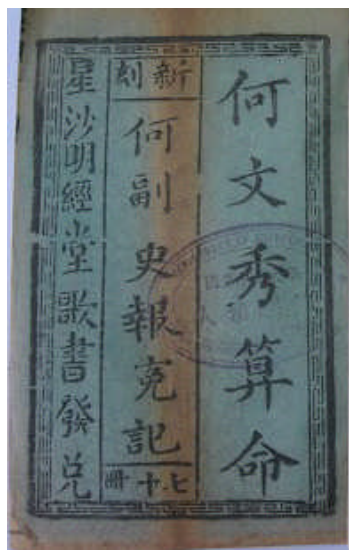 何文秀算命
新刻
何副史報冤記
七十冊
星沙明經堂歌書發兌